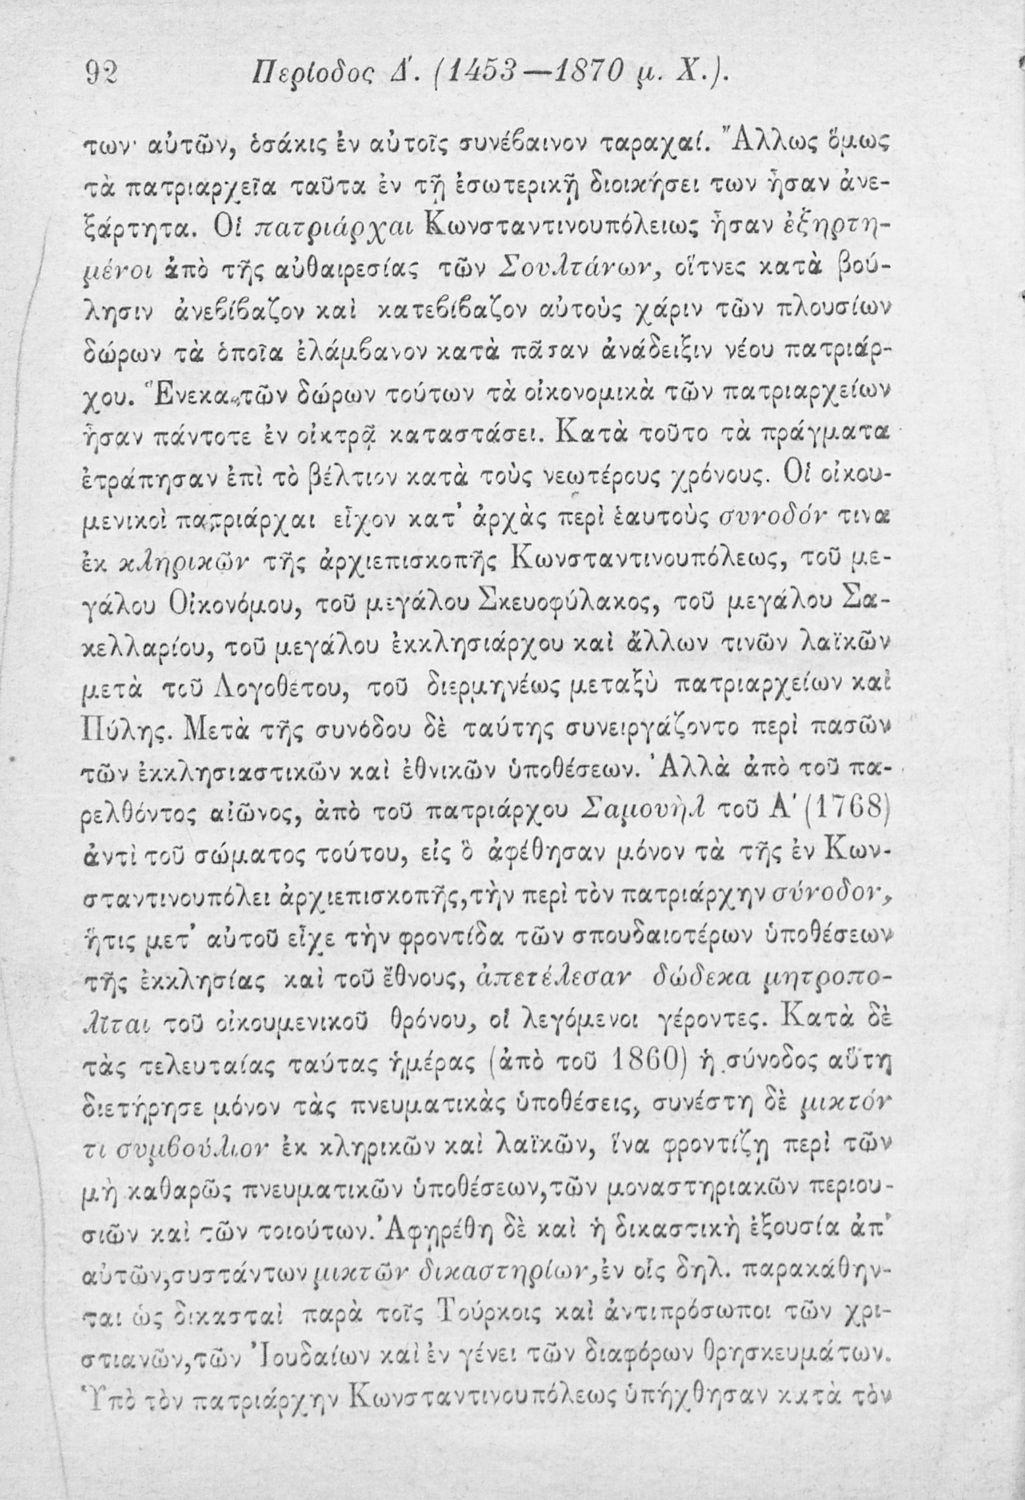 92 Περίοδος Δ΄. (1453—1870 μ. Χ.).
των· αὐτῶν, ὁσάκις ἐν αὐτοῖς συνέβαινον ταραχαί. Ἄλλως ὅμως
τὰ πατριαρχεῖα ταῦτα ἐν τῇ ἐσωτερικῇ διοικήσει των ἦσαν ἀνε-
ξάρτητα. Οἱ πατριάρχαι Κωνσταντινουπόλειως ἦσαν ἐξηρτη-
μένοι ἀπὸ τῆς αὐθαιρεσίας τῶν Σουλτάνων, οἵτνες κατὰ βού-
λησιν ἀνεβίβαζον καὶ κατεβίβαζον αὐτοὺς χάριν τῶν πλουσίων
δώρων τὰ ὁποῖα ἐλάμβανον κατὰ πᾶσαν ἀνάδειξιν νέου πατριάρ-
χου. Ἕνεκα τῶν δώρων τούτων τὰ οἰκονομικὰ τῶν πατριαρχείων
ἦσαν πάντοτε ἐν οἰκτρᾷ καταστάσει. Κατὰ τοῦτο τὰ πράγματα
ἐτράπησαν ἐπὶ τὸ βέλτιον κατὰ τοὺς νεωτέρους χρόνους. Οἱ οἰκου-
μενικοὶ πατριάρχαι εἶχον κατ᾽ ἀρχὰς περὶ ἑαυτοὺς συνοδόν τινα
ἐκ κληρικῶν τῆς ἀρχιεπισκοπῆς Κωνσταντινουπόλεως, τοῦ με-
γάλου Οἰκονόμου, τοῦ μεγάλου Σκευοφύλακος, τοῦ μεγάλου Σα-
κελλαρίου, τοῦ μεγάλου ἐκκλησιάρχου καὶ ἄλλων τινῶν λαϊκῶν
μετὰ τοῦ Λογοθέτου, τοῦ διερμηνέως μεταξὺ πατριαρχείων καὶ
Πύλης. Μετὰ τῆς συνόδου δὲ ταύτης συνειργάζοντο περὶ πασῶν
τῶν ἐκκλησιαστικῶν καὶ ἐθνικῶν ὑποθέσεων. Ἀλλὰ ἀπὸ τοῦ πα-
ρελθόντος αἰῶνος, ἀπὸ τοῦ πατριάρχου Σαμουὴλ τοῦ Α΄ (1768)
ἀντὶ τοῦ σώματος τούτου, εἰς ὃ ἀφέθησαν μόνον τὰ τῆς ἐν Κων-
σταντινουπόλει ἀρχιεπισκοπῆς, τὴν περὶ τὸν πατριάρχην σύνοδον,
ἥτις μετ᾽ αὐτοῦ εἶχε τὴν φροντίδα τῶν σπουδαιοτέρων ὑποθέσεων
τῆς ἐκκλησίας καὶ τοῦ ἔθνους, ἀπετέλεσαν δώδεκα μητροπο-
λῖται τοῦ οἰκουμενικοῦ θρόνου, οἱ λεγόμενοι γέροντες. Κατὰ δὲ
τὰς τελευταίας ταύτας ἡμέρας (ἀπὸ τοῦ 1860) ἡ σύνοδος αὕτη
διετήρησε μόνον τὰς πνευματικὰς ὑποθέσεις, συνέστη δὲ μικτόν
τι συμβούλιον ἐκ κληρικῶν καὶ λαϊκῶν, ἵνα φροντίζῃ περὶ τῶν
μὴ καθαρῶς πνευματικῶν ὑποθέσεων, τῶν μοναστηριακῶν περιου-
σιῶν καὶ τῶν τοιούτων. Ἀφῃρέθη δὲ καὶ ἡ δικαστικὴ ἐξουσία ἀπ᾽
αὐτῶν, συστάντων μικτῶν δικαστηρίων, ἐν οἷς δηλ. παρακάθην-
ται ὡς δικασταὶ παρὰ τοῖς Τούρκοις καὶ ἀντιπρόσωποι τῶν χρι-
στιανῶν, τῶν Ἰουδαίων καὶ ἐν γένει τῶν διαφόρων θρησκευμάτων.
Ὑπὸ τὸν πατριάρχην Κωνσταντινουπόλεως ὑπήχθησαν κατὰ τὸν